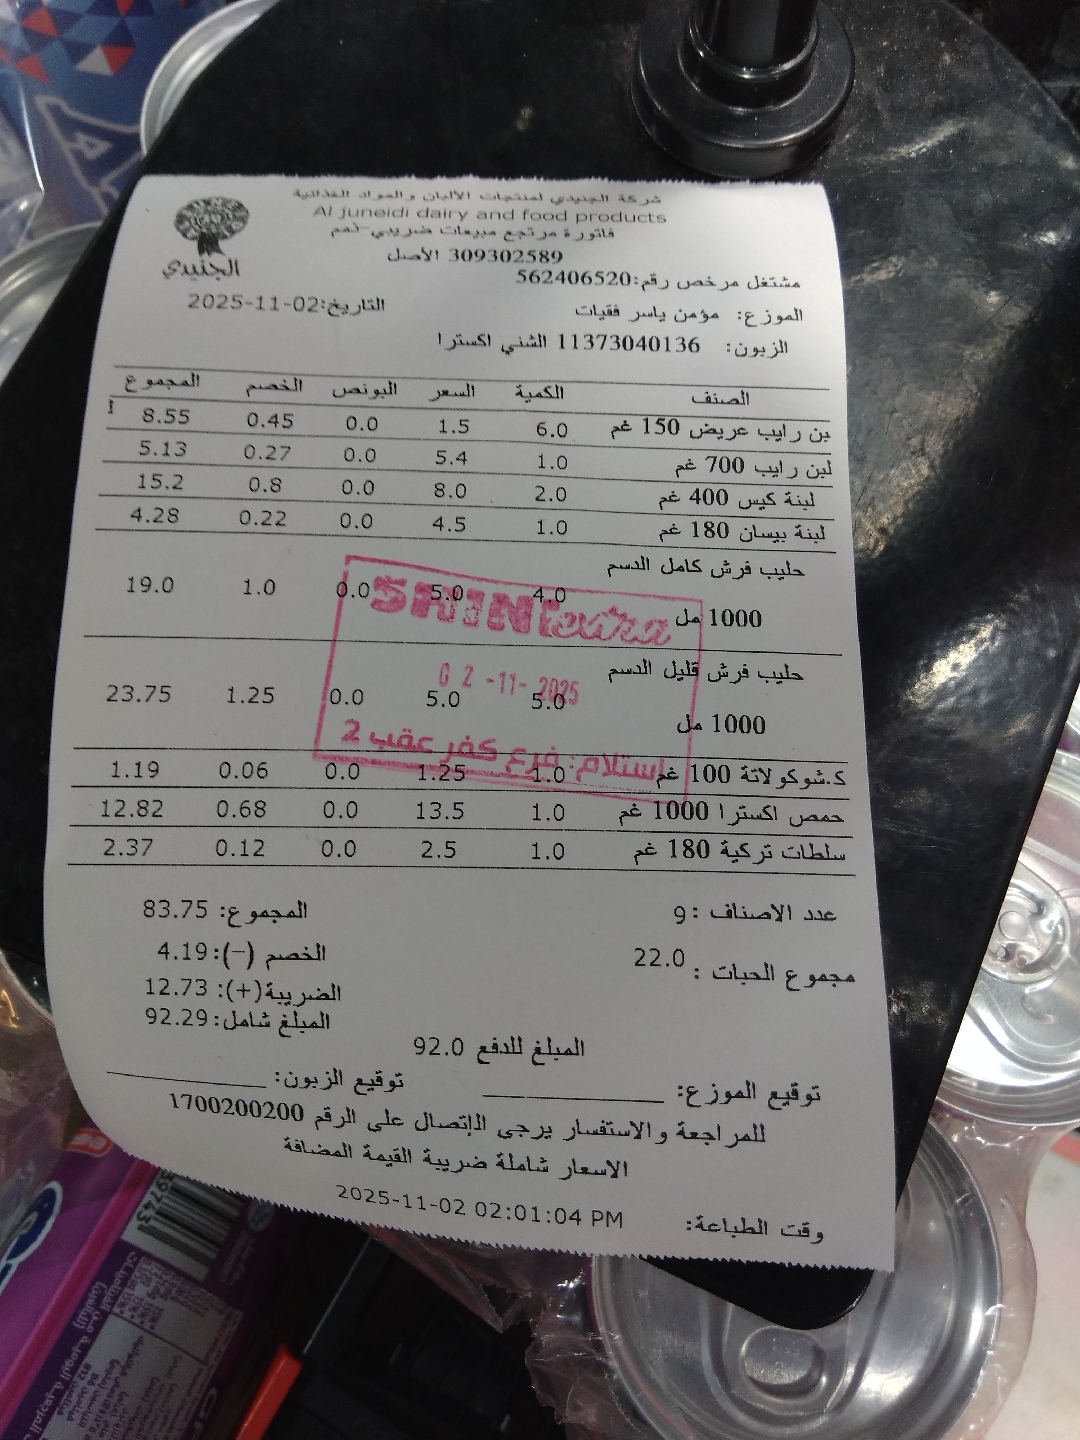 شركة الجنيدي لمنتجات الألبان والمواد الغذائية
Al juneidi dairy and food products
فاتورة مرتجع مبيعات ضريبي-ذمم
309302589 الأصل
الجنيدي
مشتغل مرخص رقم:562406520
الموزع: مؤمن ياسر فقيات التاريخ:2025-11-02
الزبون: 11373040136 الشني اكسترا
الصنف الكمية السعر البونص الخصم المجموع
بن رايب عريض 150 غم 6.0 1.5 0.0 0.45 8.55
لبن رايب 700 غم 1.0 5.4 0.0 0.27 5.13
لبنة كيس 400 غم 2.0 8.0 0.0 0.8 15.2
لبنة بيسان 180 غم 1.0 4.5 0.0 0.22 4.28
حليب فرش كامل الدسم
1000 مل 4.0 5.0 0.0 1.0 19.0
SHINI extra
حليب فرش قليل الدسم
02-11-2025
1000 مل 5.0 5.0 0.0 1.25 23.75
استلام: فرع كفر عقب 2
ك.شوكولاتة 100 غم 1.0 1.25 0.0 0.06 1.19
حمص اكسترا 1000 غم 1.0 13.5 0.0 0.68 12.82
سلطات تركية 180 غم 1.0 2.5 0.0 0.12 2.37
عدد الاصناف :9 المجموع: 83.75
مجموع الحبات : 22.0 الخصم (-):4.19
الضريبة(+): 12.73
المبلغ شامل:92.29
المبلغ للدفع 92.0
توقيع الموزع: توقيع الزبون:
للمراجعة والاستفسار يرجى الإتصال على الرقم 1700200200
الاسعار شاملة ضريبة القيمة المضافة
وقت الطباعة: 2025-11-02 02:01:04 PM